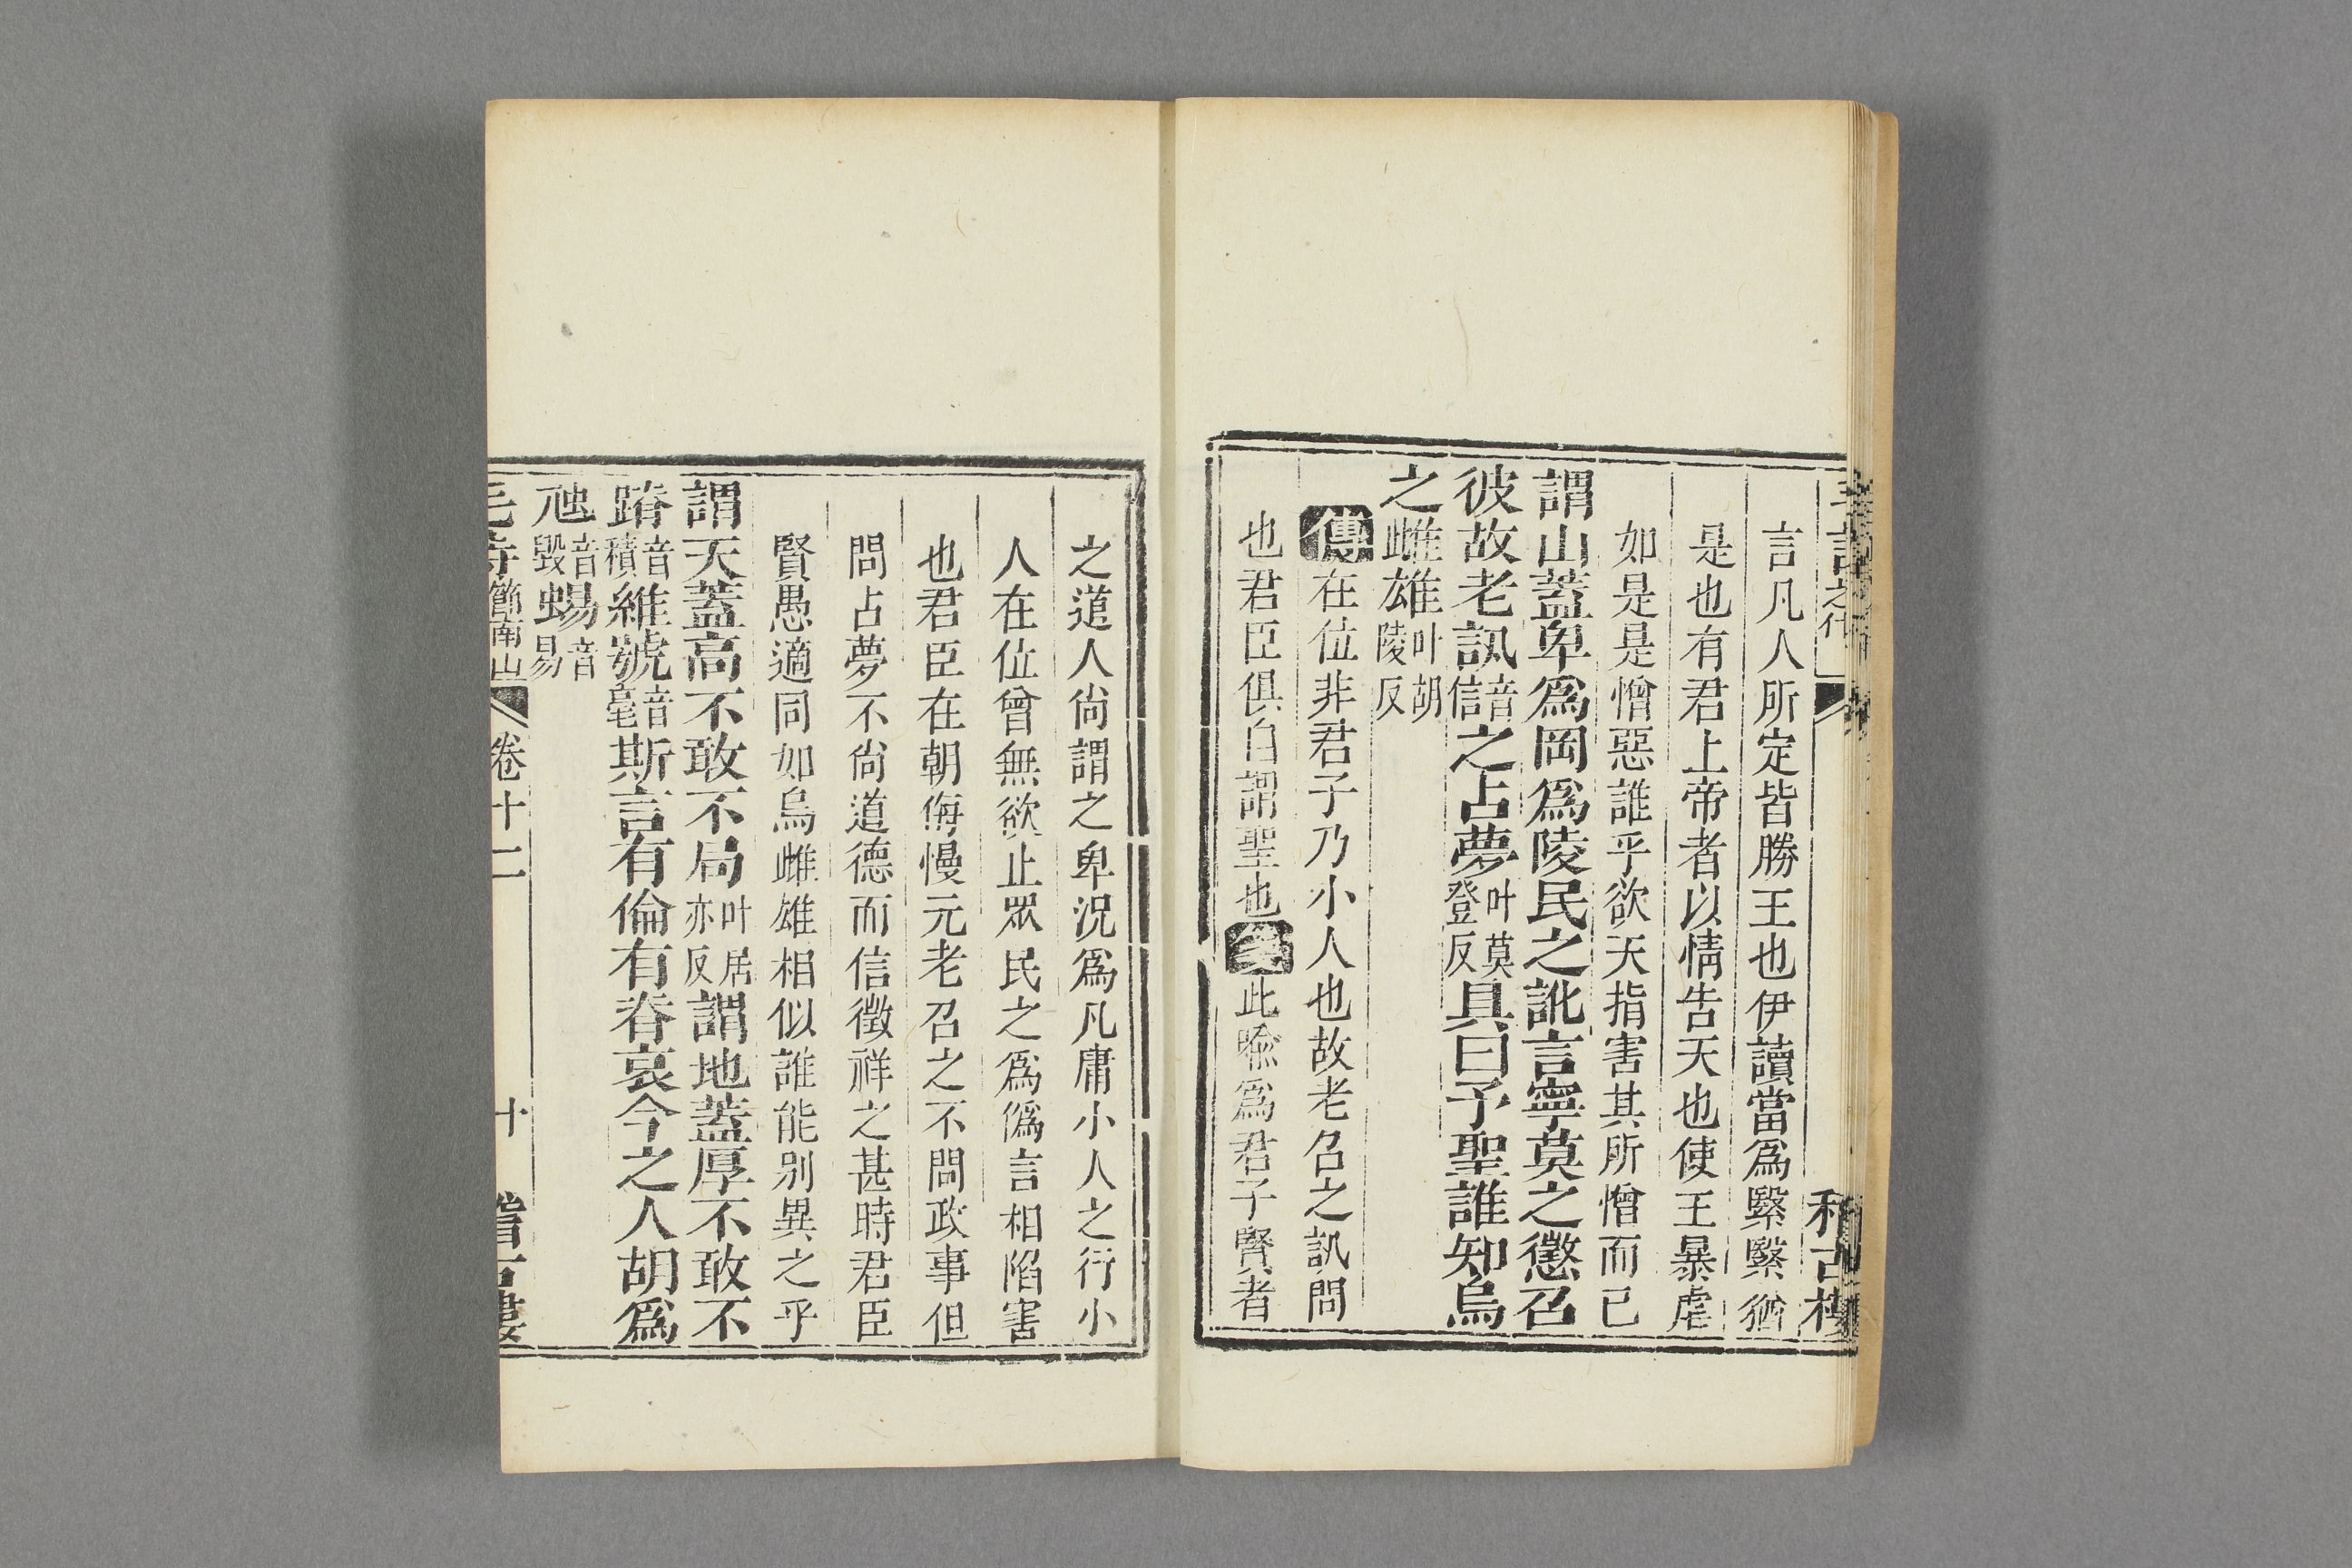 言凡人所定皆勝王也伊讀當爲繄繄猶
是也有君上帝者以情告天也使王暴虐
如是是憎惡誰乎欲天指害其所憎而已
謂山蓋卑爲岡爲陵民之訛言寧莫之懲召
彼故老訊音信之占夢叶莫登反具曰予聖誰知烏
之雌雄叶胡陵反
傳在位非君子乃小人也故老召之訊問
也君臣俱自謂聖也箋此喻爲君子賢者
之道人尙謂之卑況爲凡庸小人之行小
人在位曾無欲止眾民之爲僞言相陷害
也君臣在朝侮慢元老召之不問政事但
問占夢不尙道德而信徵祥之甚時君臣
賢愚適同如烏雌雄相似誰能别異之乎
謂天蓋高不敢不局叶居亦反謂地蓋厚不敢不
蹐音積維號音毫斯言有倫有脊哀今之人胡爲
虺音毀蜴音易
節南山 卷十二 十